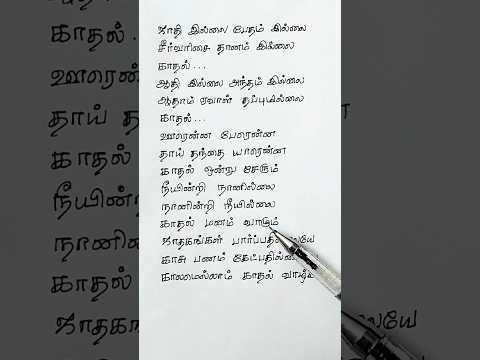 ஜாதி இல்லை பேதம் இல்லை
சீர்வரிசை தானம் இல்லை
காதல்...
ஆதி இல்லை அந்தம் இல்லை
ஆதாம் ஏவாள் தப்புமில்லை
காதல்...
ஊரென்ன பேரென்ன
தாய் தந்தை யாரென்ன
காதல் ஒன்று சேரும்
நீயின்றி நானில்லை
நானின்றி நீயில்லை
காதல் மனம் வாடும்
ஜாதகங்கள்
காசு பணம்
காலமெல்லாம் காதல்
ஊரென்ன
தாய் த
காதல்
நீயின்
நானி
காதல்